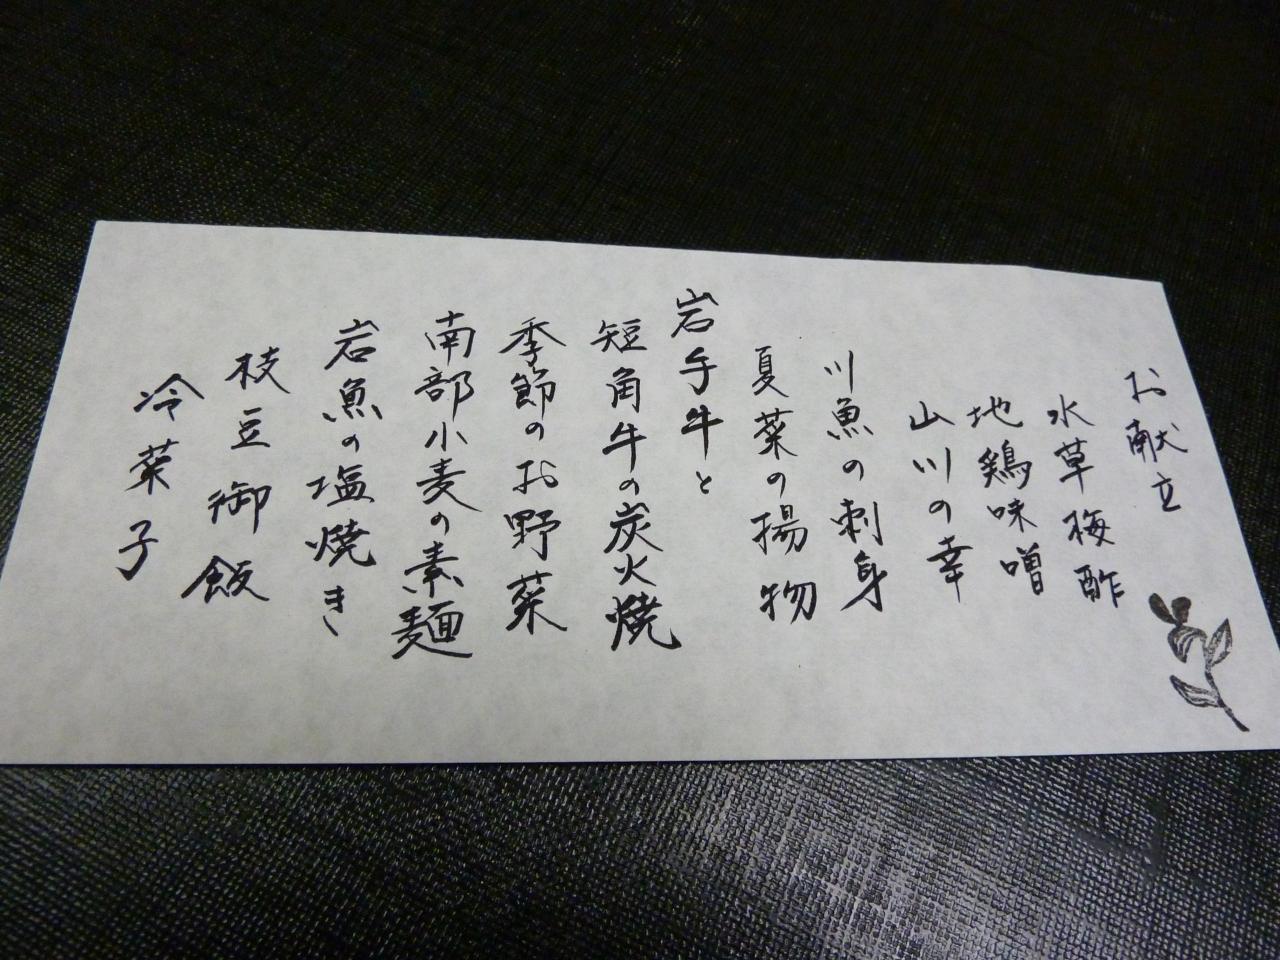 お献立
水草梅酢
地鶏味噌
山川の幸
川魚の刺身
夏菜の揚物
岩手牛と
短角牛の炭火焼
季節のお野菜
南部小麦の素麺
岩魚の塩焼き
枝豆御飯
冷菓子